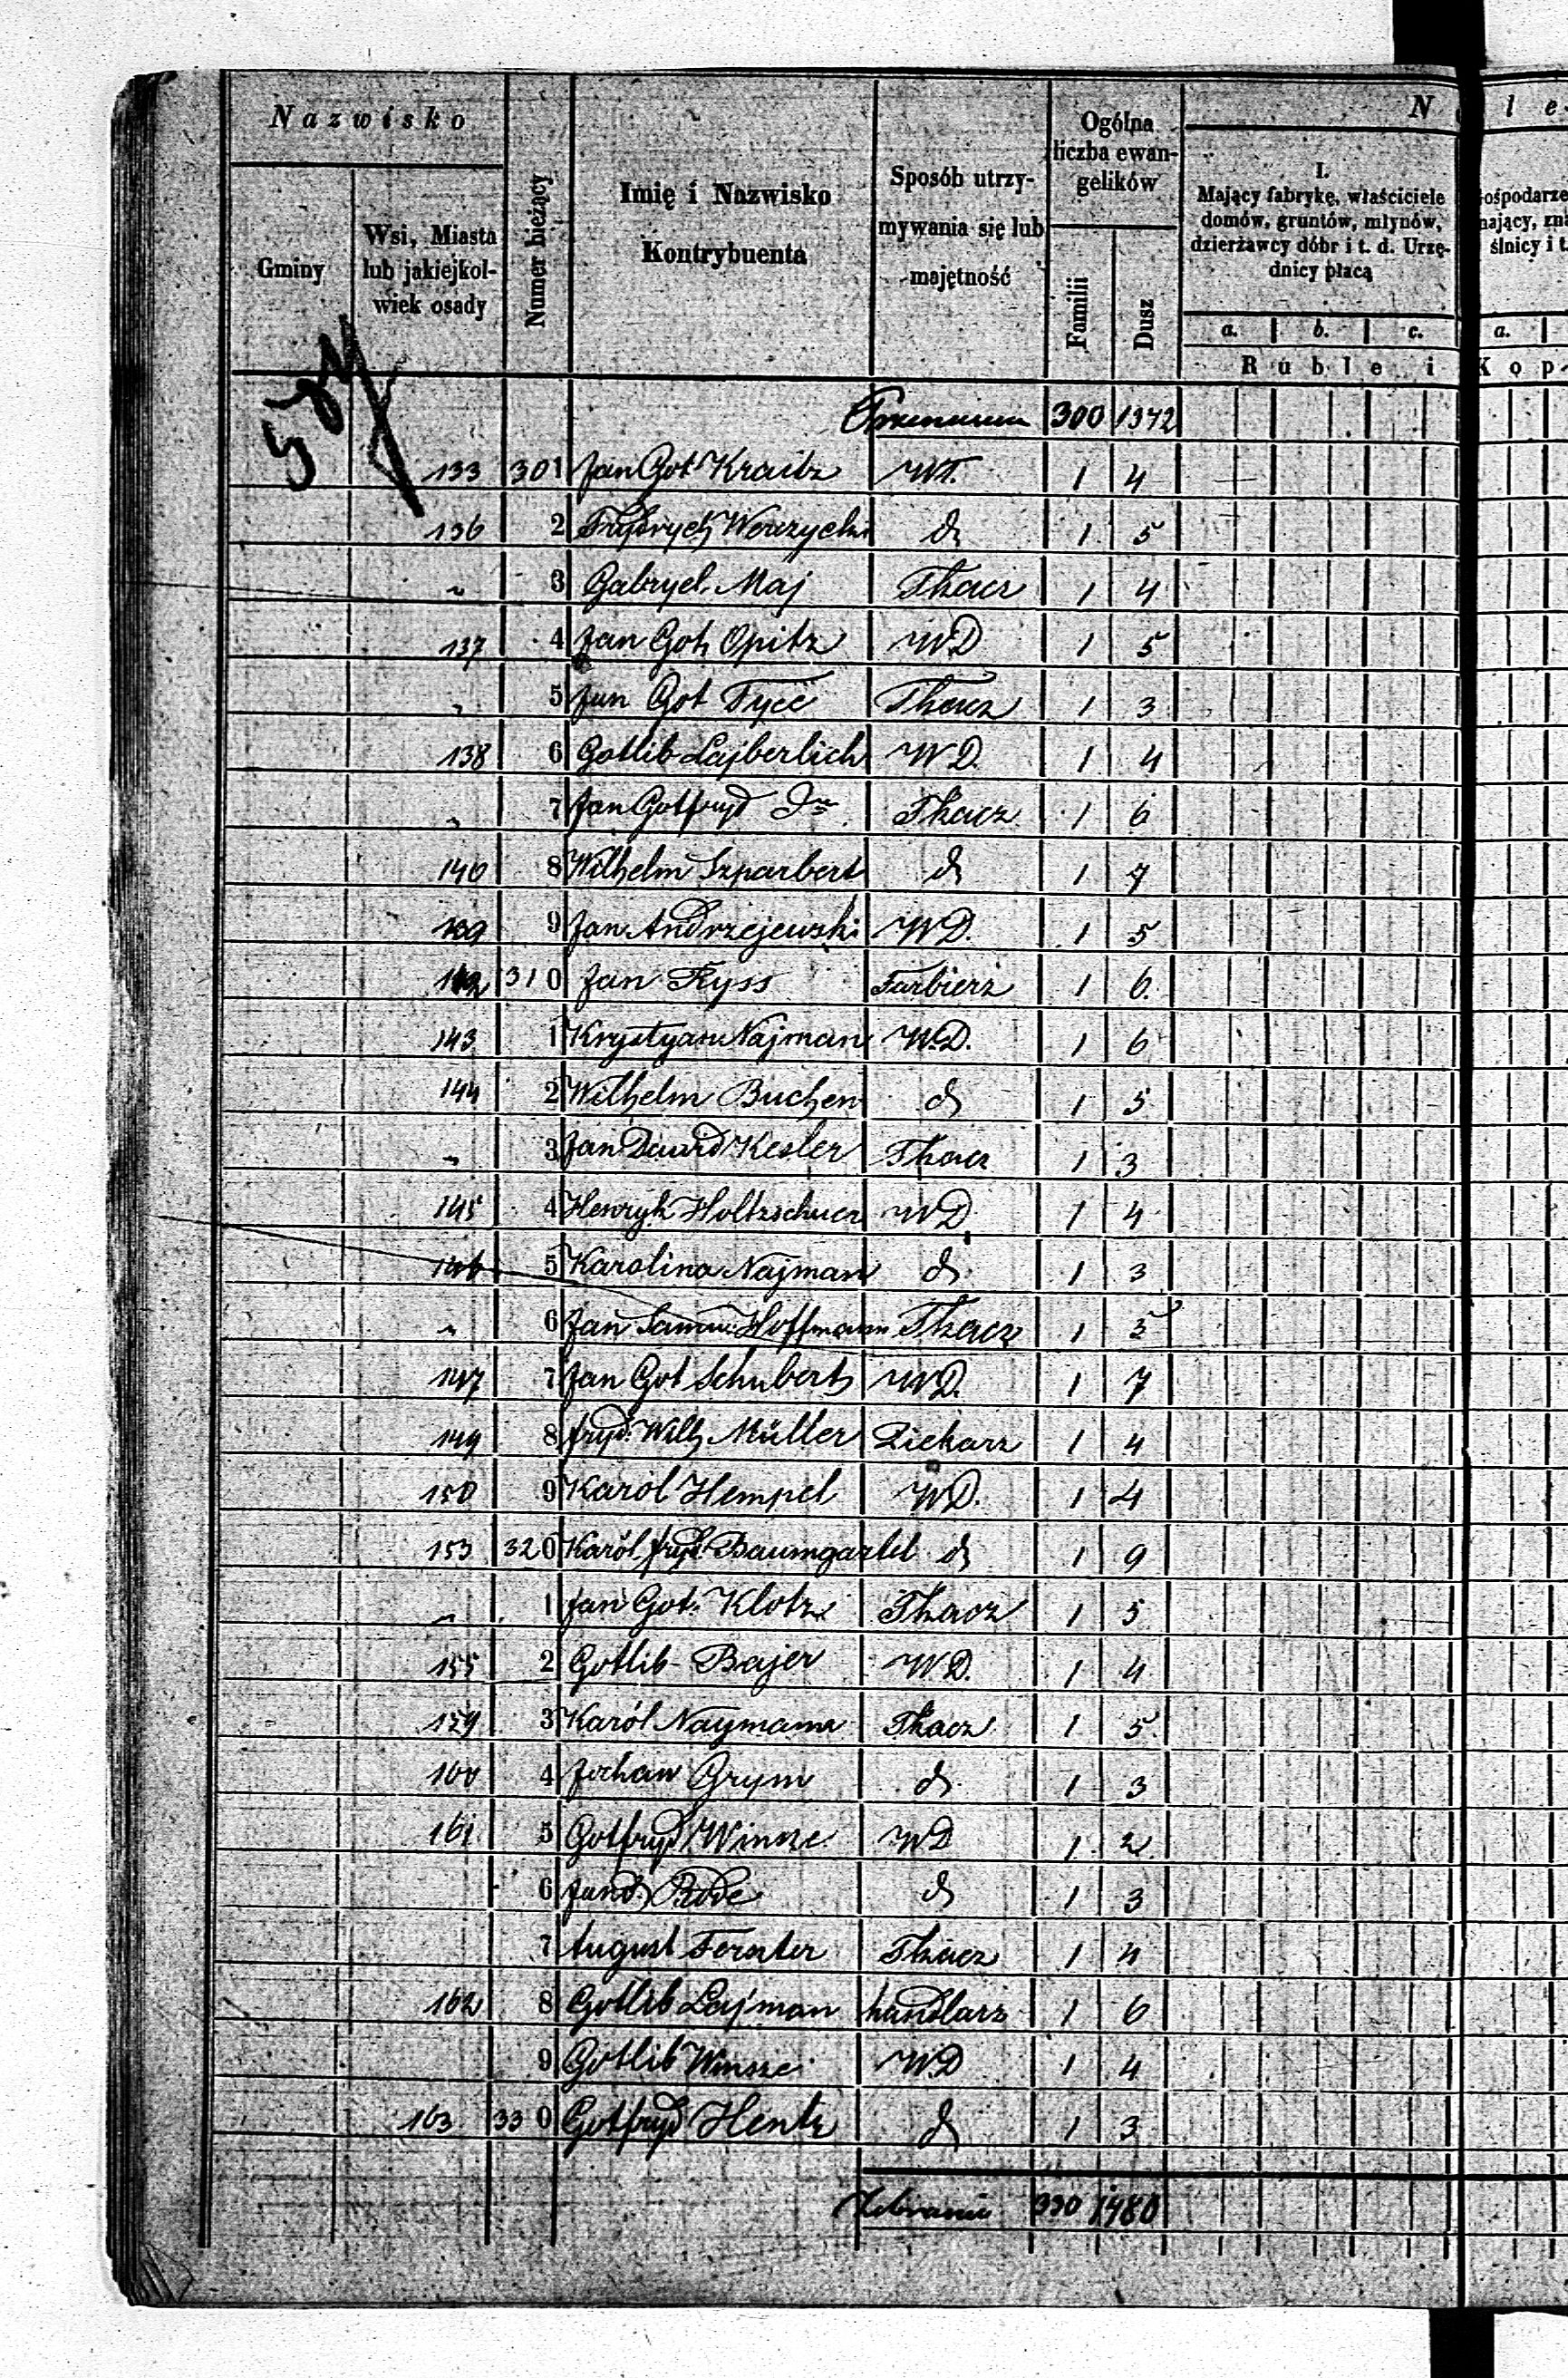 Nazwisko
Gminy
Wsi, Miasta
lub jakiejkol-
wiek osady
Numer bieżący
Imię i Nazwisko
Kontrybuenta
Sposób utrzy-
mywania się lub
majętność
Ogólna
liczba ewan-
gelików
Familii
Dusz
N l e
I.
Mający fabrykę, właściciele
domów, gruntów, młynów,
dzierżawcy dóbr i t. d. Urzę-
dnicy płacą
a. b. c. a.
Ruble i Kop
300 1372
133 301 Jan Got Kraitz WD. 1 4
136 2 Frydrych d 1 5
" 3 Gabryel Maj Tkacz 1 4
137 4 Jan Got Opitz WD 1 5
" 5 Jan Got Tyce Tkacz 1 3
138 6 Gotlib Lajberlich WD. 1 4
" 7 Jan Gotfryd Do Tkacz 1 6
140 8 Wilhelm Szparbert d 1 7
139 9 Jan Andrzejewski WD. 1 5
142 310 Jan Fryss Farbierz 1 6.
143 1 Krystyan Najman W.D. 1 6
144 2 Wilhelm Buchen d 1 5
" 3 Jan Dawid Kesler Tkacz 1 3
145 4 Henryk Holtzschuer WD 1 4
146 5 Karolina Najman d 1 3
" 6 Jan Samu: Hoffmann Tkacz 1 5
147 7 Jan Got Schubert WD. 1 7
149 8 fryd. Wilh Müller Piekarz 1 4
150 9 Karol Hempel WD. 1 4
153 320 Karól fryd. Baumgartel d 1 9
" 1 Jan Got. Klotz Tkacz 1 5
155 2 Gotlib Bajer WD. 1 4
159 3 Karól Naymann Tkacz 1 5
160 4 Johan Grym d 1 3
161 5 Gotfryd Winsze WD 1 2
6 Rode d 1 3
7 August Ferster Tkacz 1 4
162 8 Gotlib Lajman handlarz 1 6
9 Gotlib Winsze WD 1 4
163 330 Gotfryd Hentz d 1 3
330 1480